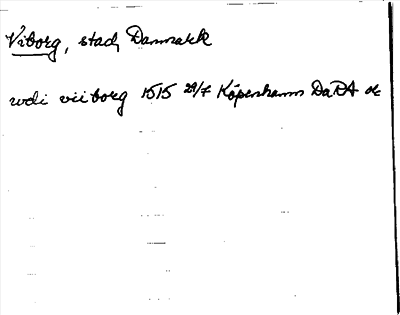 Viborg, stad, Danmark
wdi viiborg 1515 29/7 Köpenhamn DaRA dc